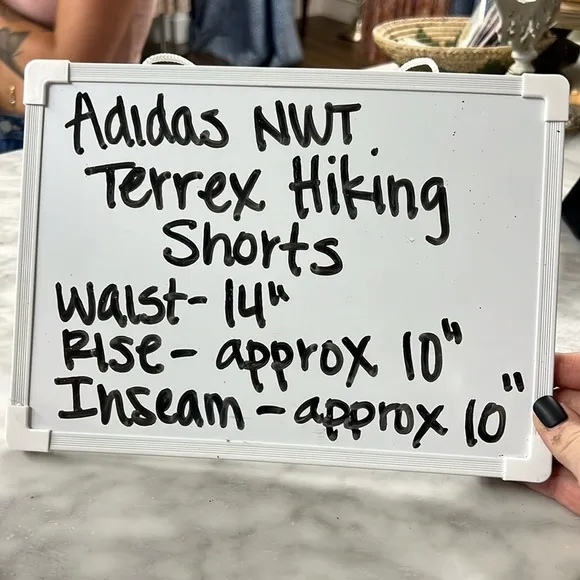 Adidas NWT.
Terrex Hiking
Shorts
Waist- 14"
Rise- approx 10"
Inseam - approx 10"